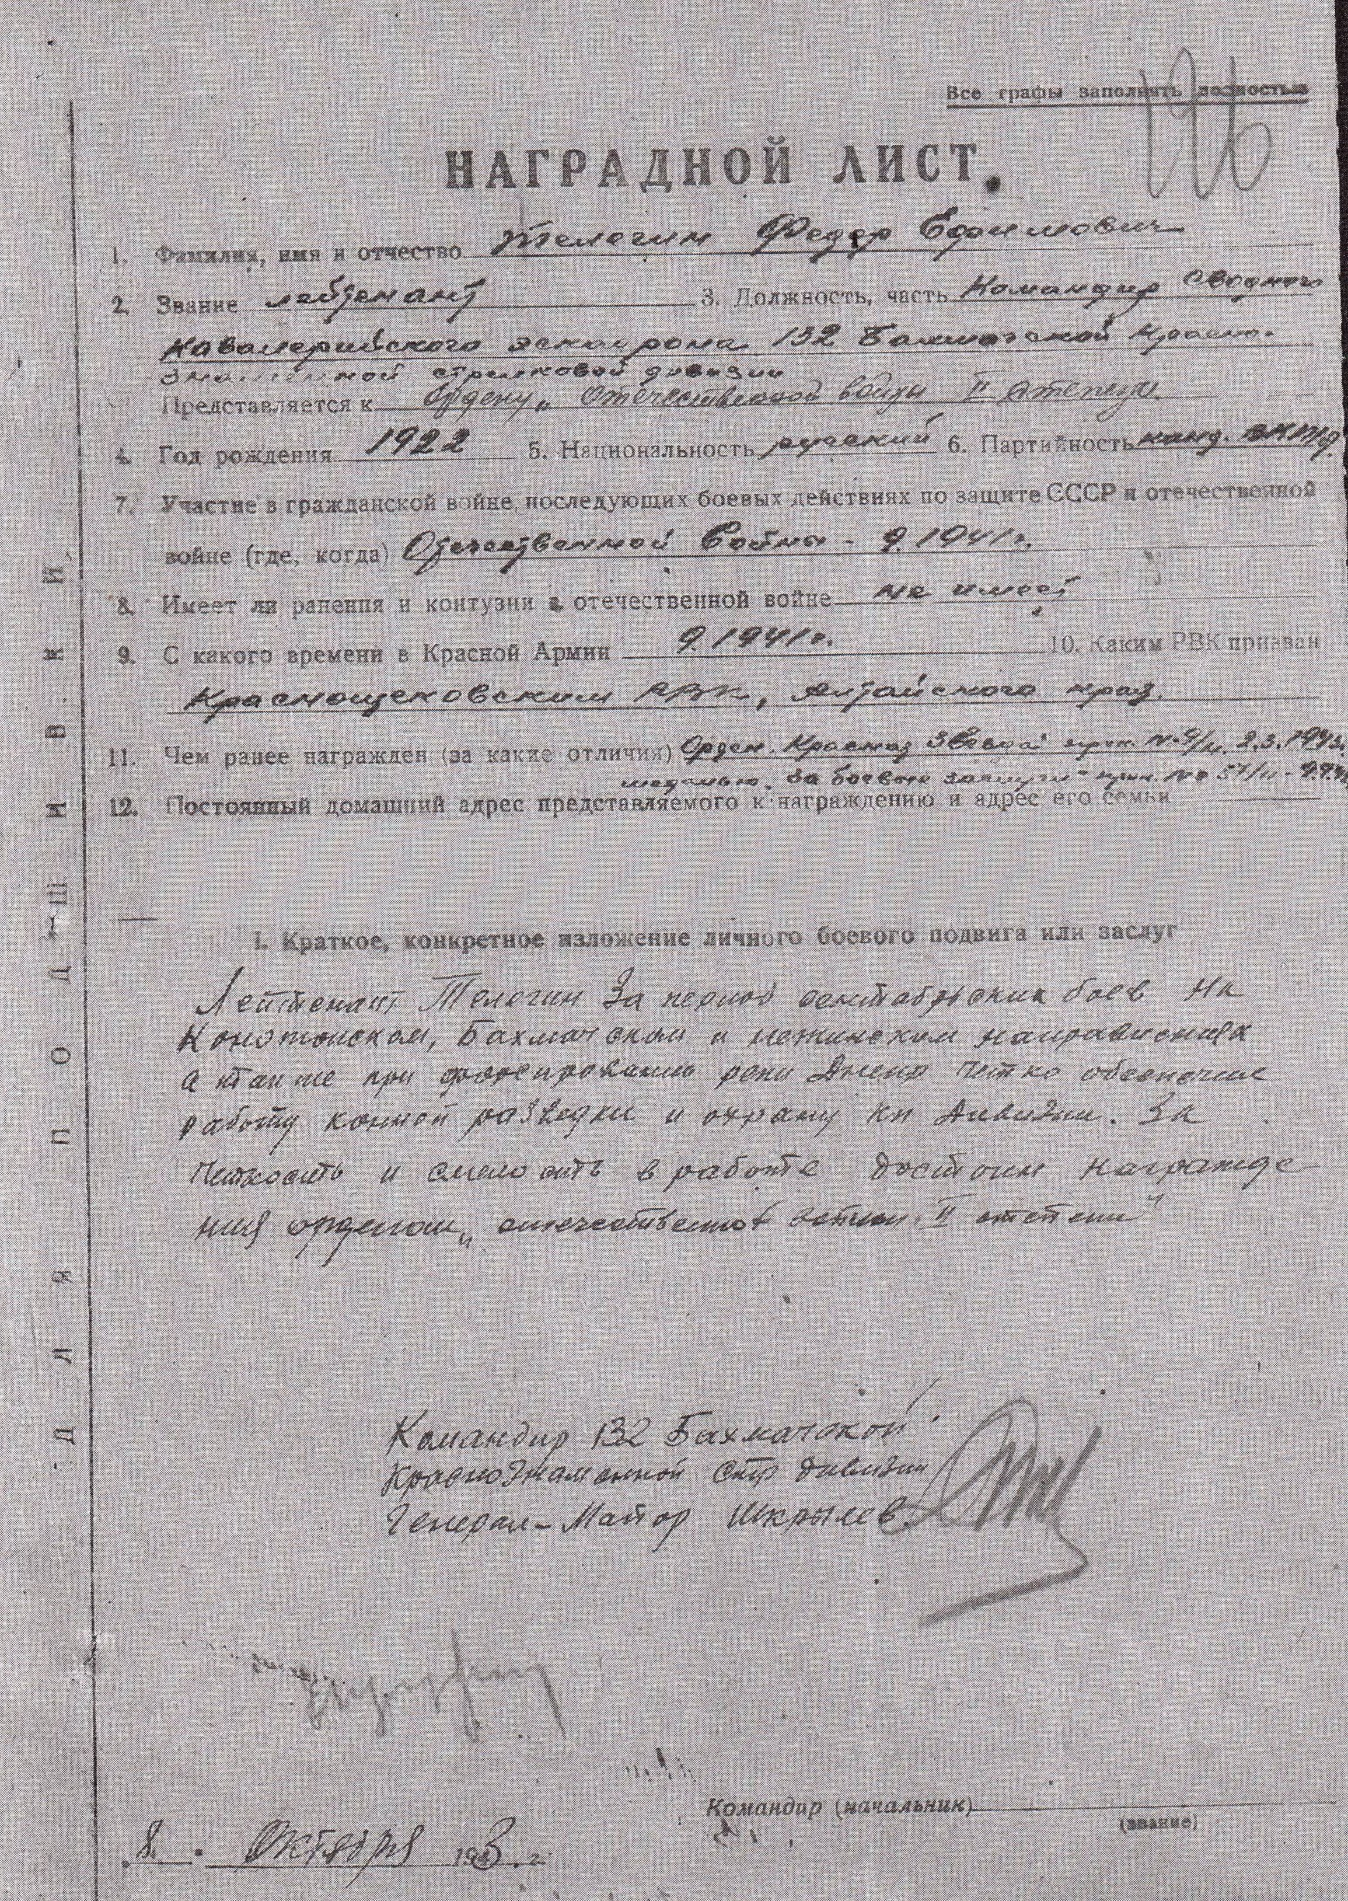 Все графы заполнять полностью
196
НАГРАДНОЙ ЛИСТ.
1. Фамилия, имя и отчество Телегин Федор Ефимович
2. Звание лейтенант 3. Должность, часть Командир сводного
кавалерийского эскадрона 132 Бахмачской Красно-
знаменной стрелковой дивизии
Представляется к ордену „Отечественной войны II степени
4. Год рождения 1922 5. Национальность русский 6. Партийность канд. ВКП/б
7. Участие в гражданской войне, последующих боевых действиях по защите СССР и отечественной
войне (где, когда) Отечественной войны - 9.1941г.
8. Имеет ли ранения и контузии в отечественной войне не имеет
9. С какого времени в Красной Армии 9.1941г. 10. Каким РВК призван
Краснощековским РВК, Алтайского края.
11. Чем ранее награжден (за какие отличия) Орден. Красная Звезда прик. № 4/н. 2.3.1943.
медалью „За боевые заслуги" прик. № 57/н -
12. Постоянный домашний адрес представляемого к награждению и адрес его семьи
ДЛЯ ПОДШИВКИ
I. Краткое, конкретное изложение личного боевого подвига или заслуг
Лейтенант Телегин За период сентябрьских боев на
Конотопском, Бахмачском и нежинском направлениях
а также при форсировании реки Днепр четко обеспечил
работу конной разведки и охрану кп дивизии. За
четкость и смелость в работе достоин награжде-
ния орденом „отечественной войны II степени"
Командир 132 Бахмачской
Краснознаменной Стр дивизии
Генерал-Майор Шкрылев
Командир (начальник)
(звание)
8. Октября 1943 г.